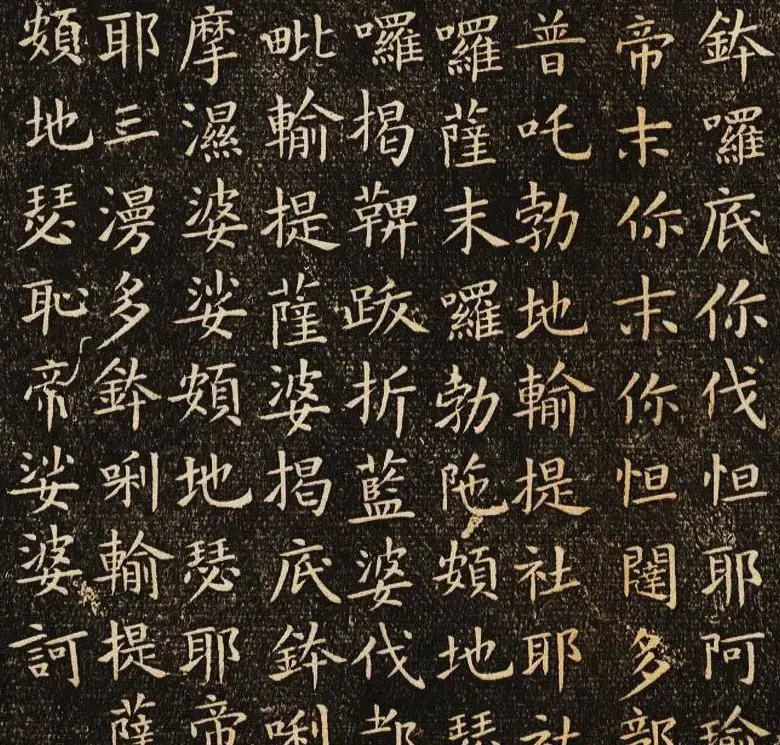 鉢囉底你伐怛耶阿瑜
帝末你末你怛闥多部
普吒勃地輸提社耶社
囉薩末囉勃陁頞地瑟
囉揭鞞跋折藍婆伐都
毗輸提薩婆揭底鉢唎
摩濕婆娑頞地瑟耶帝
耶三漫多鉢唎輸提薩
頞地瑟恥帝娑婆訶